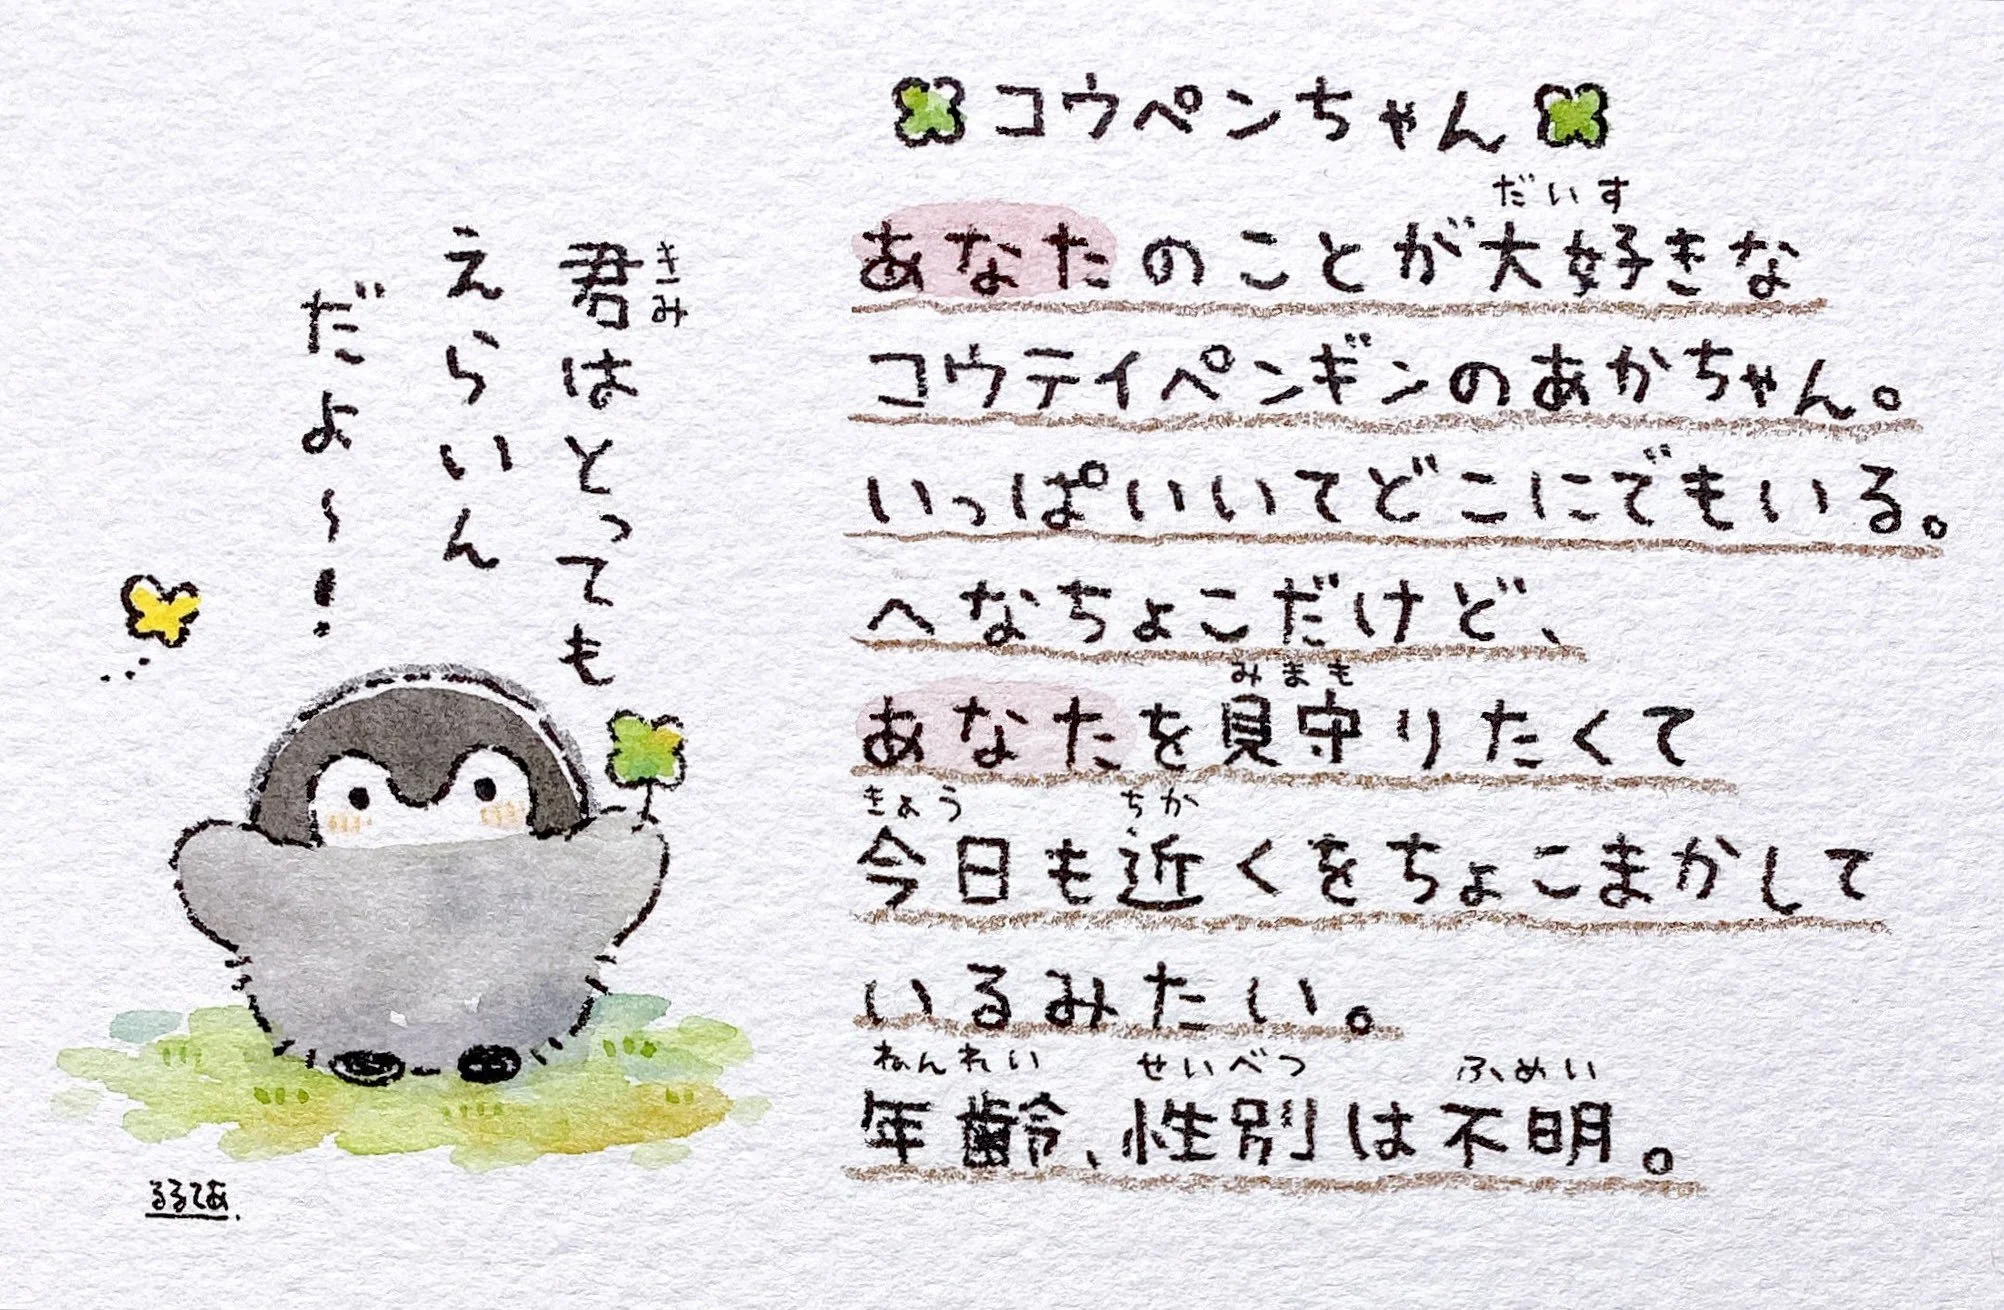 コウペンちゃん
だいす
あなたのことが大好きな
コウテイペンギンのあかちゃん。
いっぱいいてどこにでもいる。
へなちょこだけど、
みまも
あなたを見守りたくて
きょう ちか
今日も近くをちょこまかして
いるみたい。
ねんれい せいべつ ふめい
年齢、性別は不明。
きみ
君はとっても
えらいん
だよ〜!
るるてあ